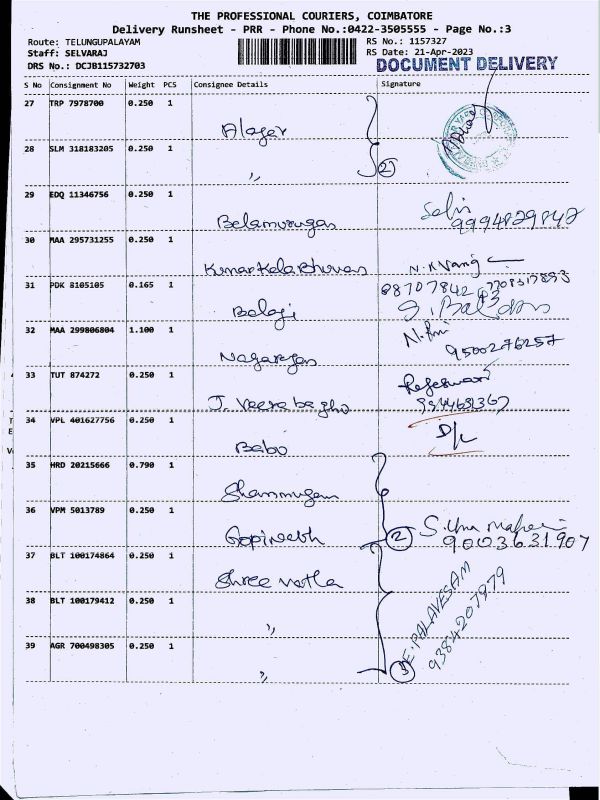 THE PROFESSIONAL COURIERS, COIMBATORE
Delivery Runsheet - PRR - Phone No.:0422-3505555 - Page No.:3
Route: TELUNGUPALAYAM RS No.: 1157327
Staff: SELVARAJ RS Date: 21-Apr-2023
DRS No.: DCJB115732703 DOCUMENT DELIVERY
S No Consignment No Weight PCS Consignee Details Signature
27 TRP 7978700 0.250 1
Alager
28 SLM 318183205 0.250 1
" 2
29 EDQ 11346756 0.250 1
Belamurugan 9994829842
30 MAA 295731255 0.250 1
31 PDK 8105105 0.165 1
Belegi
32 MAA 299806804 1.100 1
Nagarajan 9500276257
33 TUT 874272 0.250 1
34 VPL 401627756 0.250 1
Babu D/L
35 HRD 20215666 0.790 1
Shanmugam
36 VPM 5013789 0.250 1
Gopineth 2 9003631907
37 BLT 100174864 0.250 1
Shree
38 BLT 100179412 0.250 1
" E. PALAVESAM
39 AGR 700498305 0.250 1
" 3 9384207979